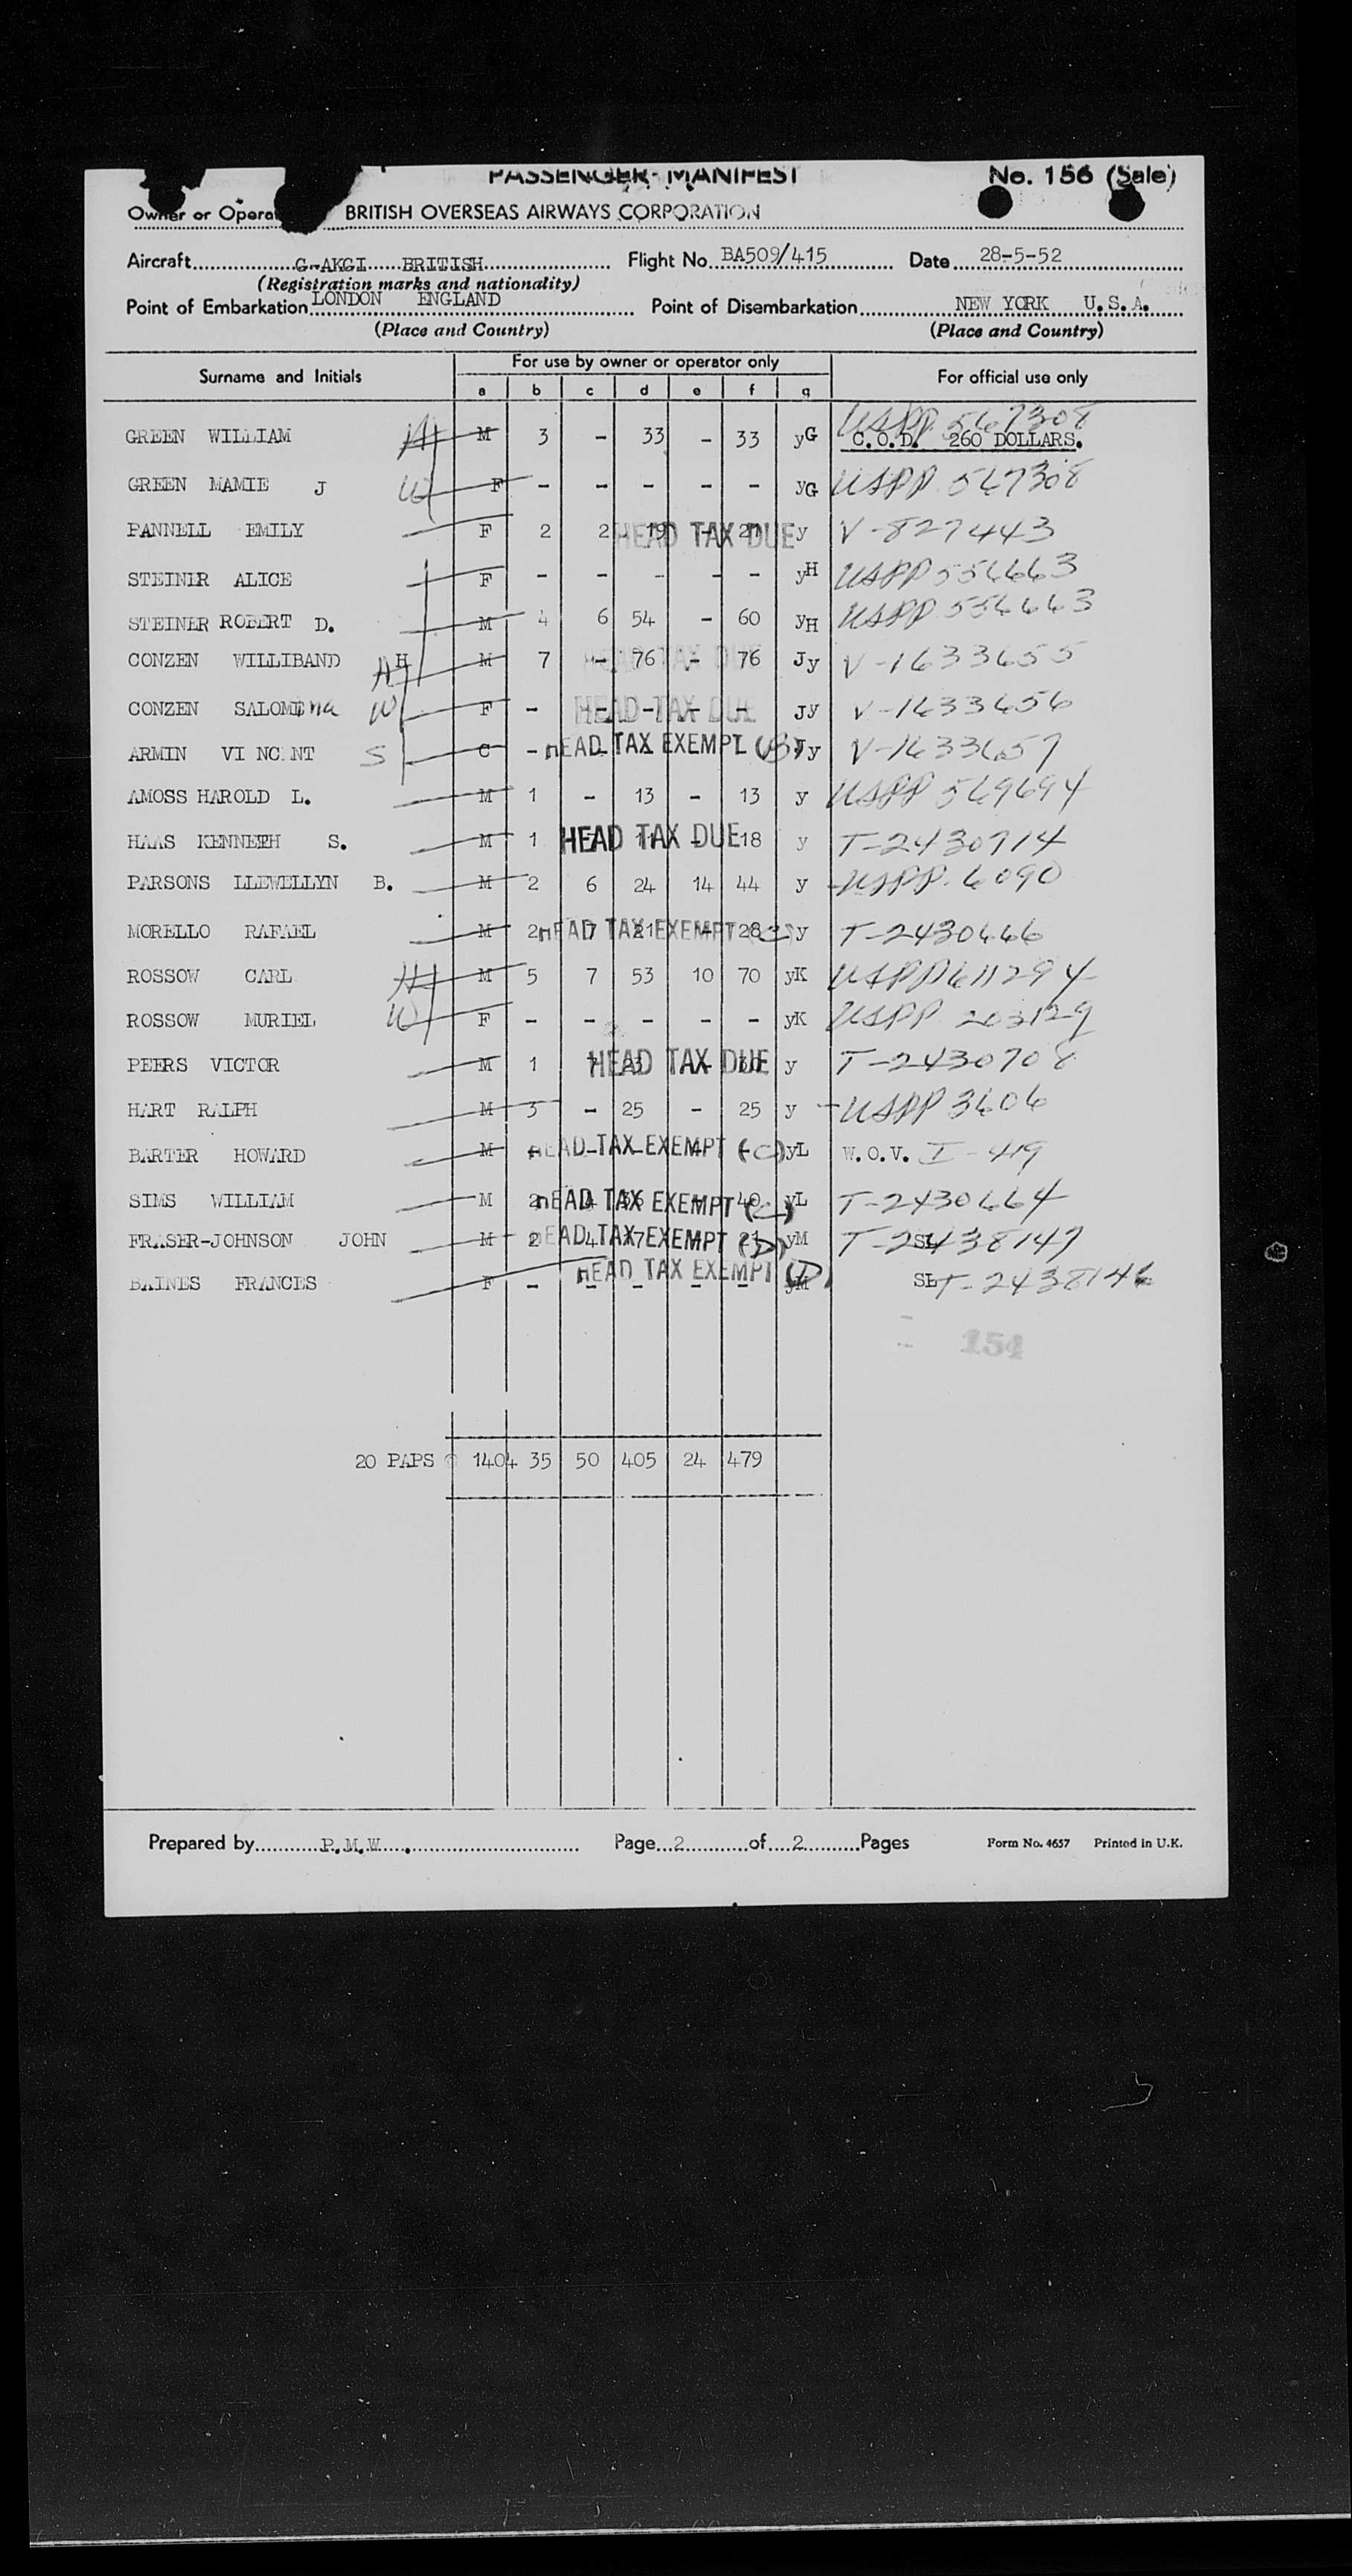 PASSENGER MANIFEST No. 156 (Sale)
Owner or Operat BRITISH OVERSEAS AIRWAYS CORPORATION
Aircraft G-AKGI BRITISH Flight No. BA509/415 Date 28-5-52
(Registration marks and nationality)
Point of Embarkation LONDON ENGLAND Point of Disembarkation NEW YORK U.S.A.
(Place and Country) (Place and Country)
Surname and Initials For use by owner or operator only For official use only
a b c d e f g
USPP 567308
GREEN WILLIAM H M 3 - 33 - 33 yG C.O.D. 260 DOLLARS.
GREEN MAMIE J W F - - - - - yG USPP 567308
PANNELL EMILY F 2 2 19 - 21 y HEAD TAX DUE V-827443
STEINER ALICE F - - - - - yH USPP 556663
STEINER ROBERT D. M 4 6 54 - 60 yH USPP 556663
CONZEN WILLIBAND H H M 7 - 76 - 76 Jy HEAD TAX DUE V-1633655
CONZEN SALOMEna W F - - - - - Jy HEAD TAX DUE V-1633656
ARMIN VINC NT S C - - - - - Jy HEAD TAX EXEMPT (B) V-1633657
AMOSS HAROLD L. M 1 - 13 - 13 y USPP 569694
HAAS KENNETH S. M 1 HEAD TAX DUE 18 y T-2430714
PARSONS LLEWELLYN B. M 2 6 24 14 44 y USPP 6090
MORELLO RAFAEL M 2 7 21 - 28 y HEAD TAX EXEMPT (C) T-2430666
ROSSOW CARL H M 5 7 53 10 70 yK USPP 611294
ROSSOW MURIEL W F - - - - - yK USPP 203129
PEERS VICTOR M 1 7 23 - 30 y HEAD TAX DUE T-2430708
HART RALPH M 3 - 25 - 25 y USPP 3606
BARTER HOWARD M - - - - - yL HEAD TAX EXEMPT (C) W.O.V. I-419
SIMS WILLIAM M 2 4 36 - 40 yL HEAD TAX EXEMPT (C) T-2430664
FRASER-JOHNSON JOHN M 2 4 17 - 21 yM HEAD TAX EXEMPT (D) SL T-2438147
BAINES FRANCES F - - - - - yM HEAD TAX EXEMPT (D) SL T-2438146
154
20 PAPS 1404 35 50 405 24 479
Prepared by P.M.W. Page 2 of 2 Pages Form No. 4657 Printed in U.K.